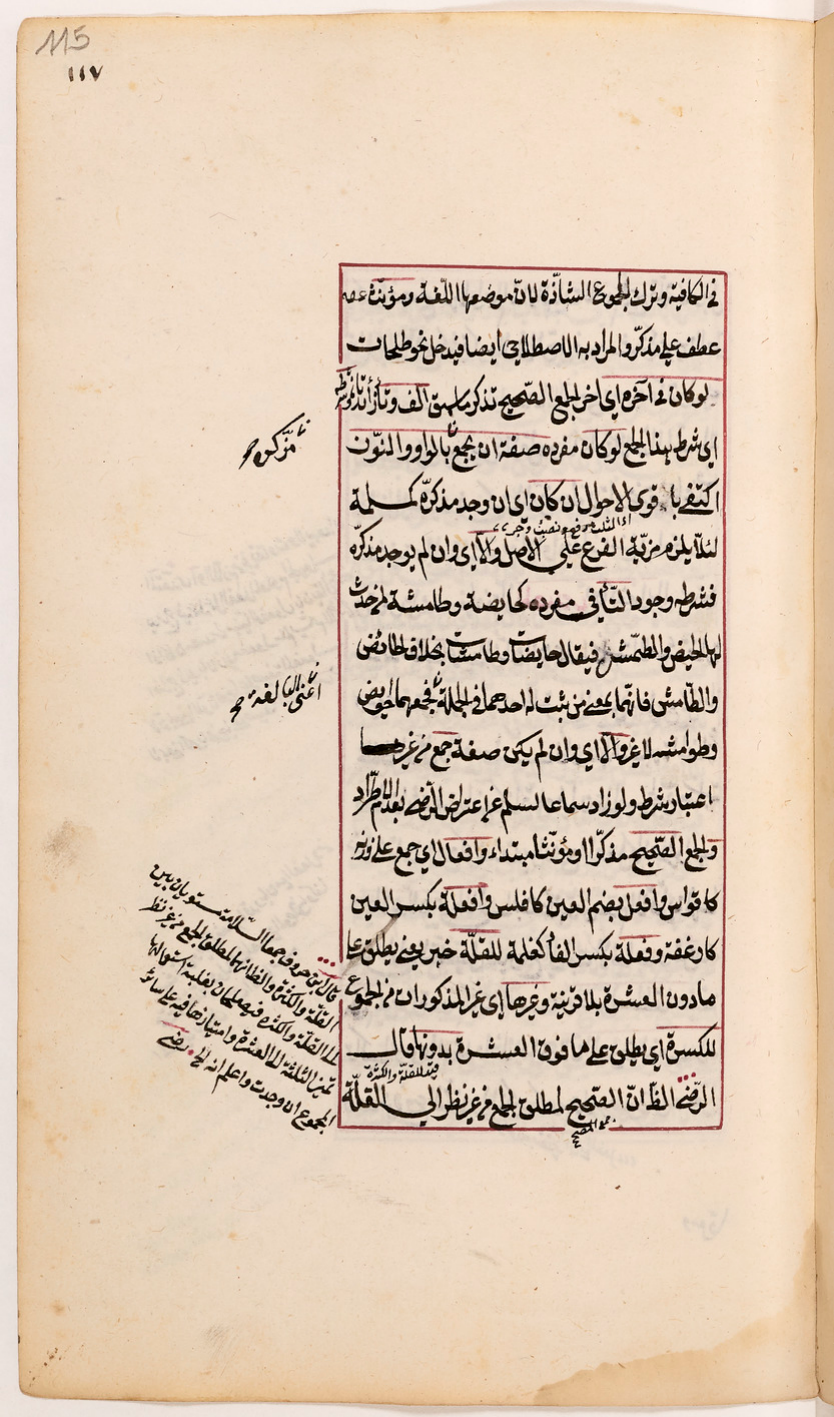 115
١١٧
في الكافية وترك الجموع الشاذّة لانّ موضعها اللّغة ومؤنّثه
عطف على مذكّر والمراد به الاصطلاحي ايضا فيدخل نحو طلحات
لو كان في آخره اي اخر الجمع الصّحيح تذكر ما سبق الف وتاء زائدتان
اي شرط هذا الجمع لو كان مفرده صفة ان يجمع بالواو والنّون
اكتفى باقوى الاحوال ان كان اي ان وجد مذكّره كمسلمة
لئلّا يلزم مزيّة الفرع على الاصل والّا اي وان لم يوجد مذكّره
فشرطه وجود التّاء في مفرده كحايضة وطامثة لمن حدث
لها الحيض والطّمث فيقال حايضات وطامثات بخلاف الحائض
والطّامث فانّهما بمعنى من ثبت له احدهما في الجملة فجمعهما حوايض
وطوامث لا غير والّا اي وان لم يكن صفة جمع من غير
اعتبار شرط ولو زاد سماعا لسلم عن اعتراض الرّضي بعدم الاطّراد
والجمع الصّحيح مذكّرا او مؤنّثا مبتداء وافعال اي جمع على وزنه
كاقواس وافعل بضم العين كافلس وافعلة بكسر العين
كارغفة وفعلة بكسر الفاء كغلمة للقلّة خبر يعني يطلق على
ما دون العشرة بلا قرينة وغيرها اي غير المذكور ان من الجموع
للكسرة اي يطلق على ما فوق العشرة بدونها قال
الرّضي الظّ انّ الصّحيح لمطلق الجمع من غير نظر الى القلّة
مذّكره
اعني البالغة
قال ابن خروف جمعا السّلامة مشتركان بين
القلّة والكثرة والظّ انهما لمطلق الجمع من غير نظر
الى القلّة والكثرة فيصلحان لهما